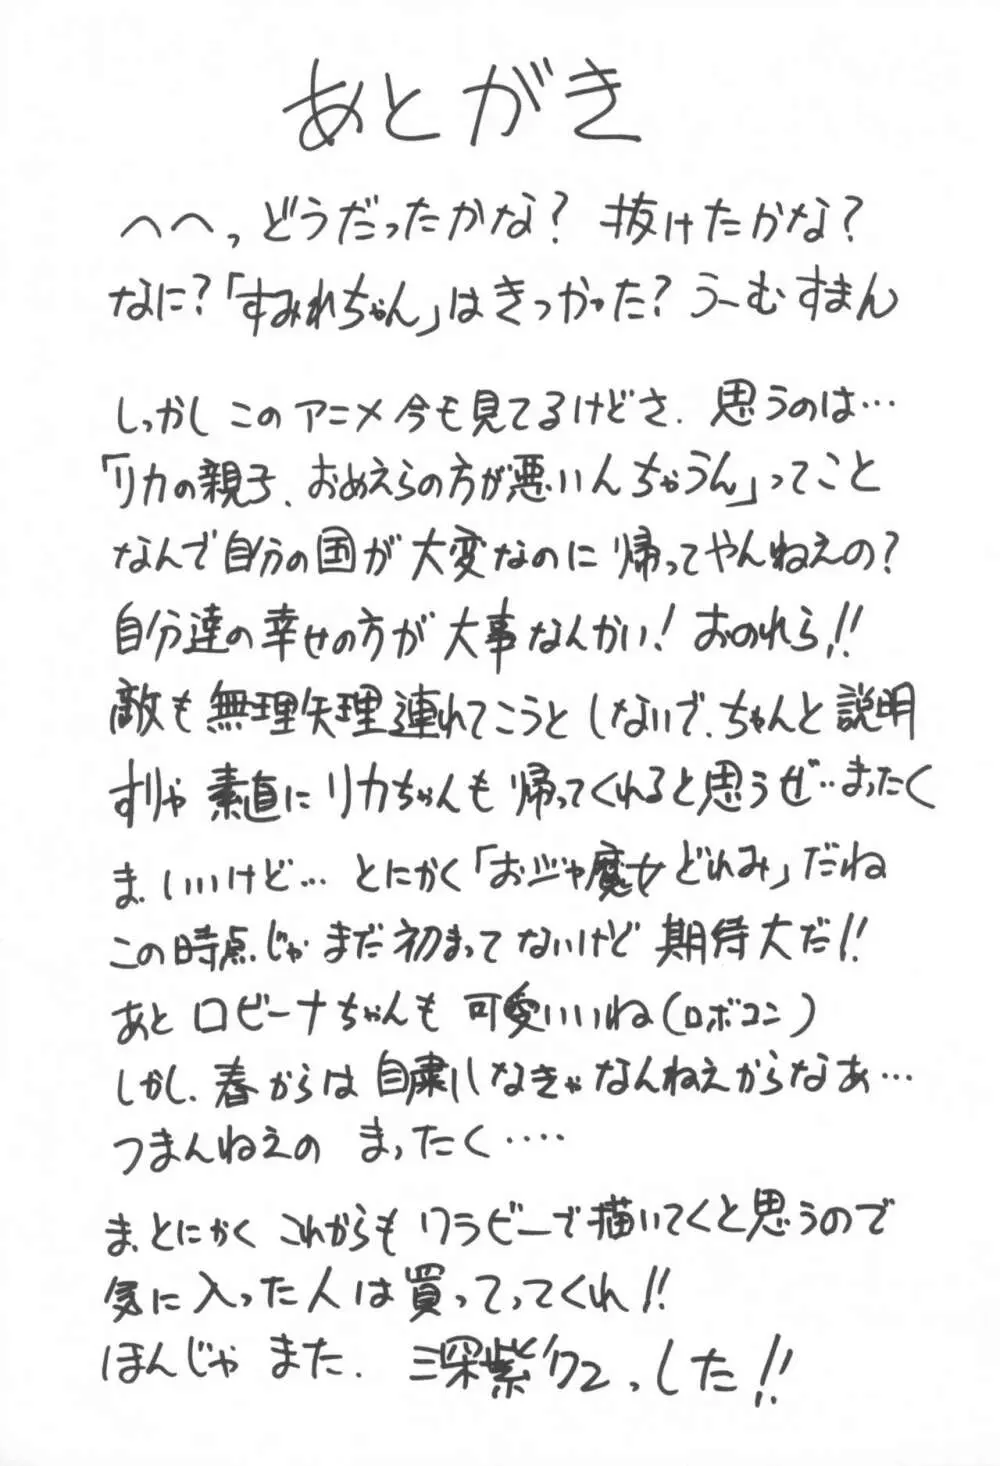 あとがき
へへっどうだったかな？抜けたかな？
なに？「すみれちゃん」はきつかった？うーむすまん
しっかしこのアニメ今も見てるけどさ、思うのは…
「リカの親子、おめえらの方が悪いんちゃうん」ってこと
なんで自分の国が大変なのに帰ってやんねえの？
自分達の幸せの方が大事なんかい！おのれら!!
敵も無理矢理連れてこうとしないで、ちゃんと説明
すりゃ素直にリカちゃんも帰ってくれると思うぜ…まったく
ま、いいけど…とにかく「おジャ魔女どれみ」だね
この時点じゃまだ初まってないけど期待大だ!!
あとロビーナちゃんも可愛いいね（ロボコン）
しかし、春からは自粛しなきゃなんねえからなあ…
つまんねえの まったく‥‥
ま、とにかくこれからもワラビーで描いてくと思うので
気に入った人は買ってってくれ!!
ほんじゃまた。 っした!!